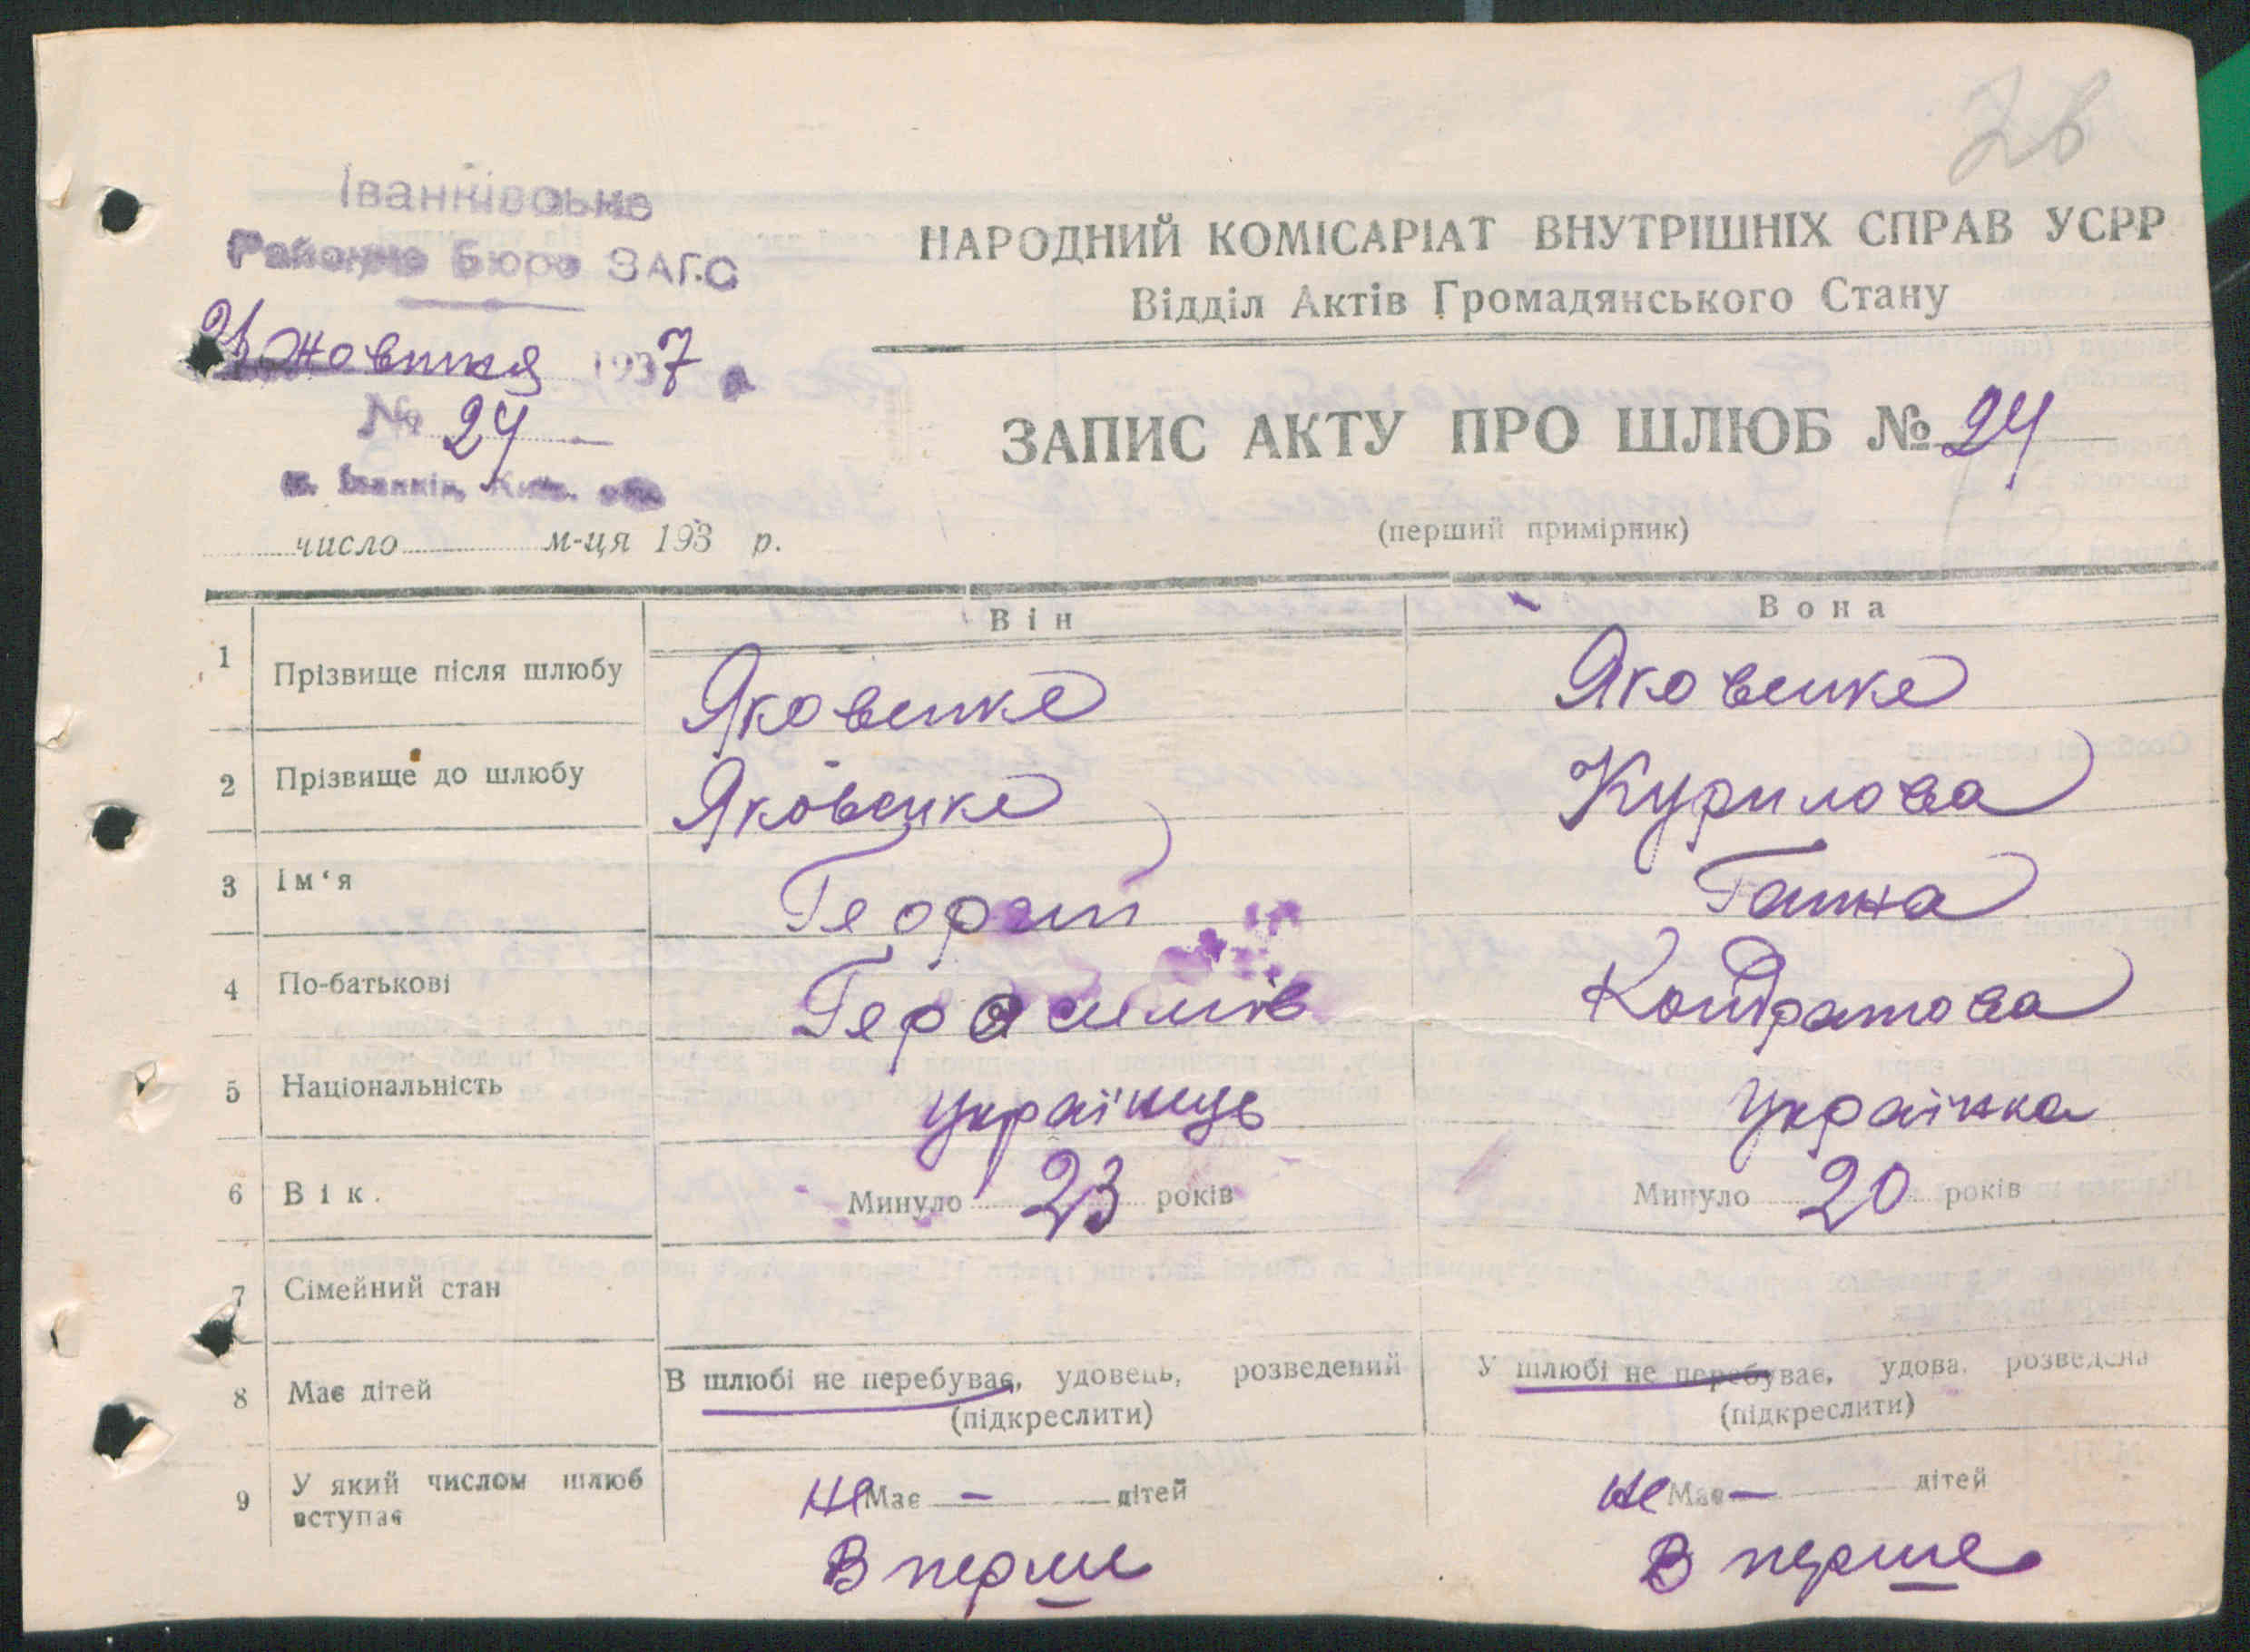 26
Іванківське
Районне Бюро ЗАГ.С
Жовтня 1937
№ 24
м. Іванків, Київ. обл.
число м-ця 193 р.
НАРОДНИЙ КОМІСАРІАТ ВНУТРІШНІХ СПРАВ УСРР
Відділ Актів Громадянського Стану
ЗАПИС АКТУ ПРО ШЛЮБ № 24
(перший примірник)
Він Вона
1 Прізвище після шлюбу Яковенко Яковенко
2 Прізвище до шлюбу Яковенко Курилова
3 Ім‘я Георгій Ганна
4 По-батькові Герасимів Кондратова
5 Національність Українець Українка
6 Вік. Минуло 23 років Минуло 20 років
7 Сімейний стан
8 Має дітей В шлюбі не перебуває, удовець, розведений У шлюбі не перебуває, удова, розведена
(підкреслити) (підкреслити)
9 У який числом шлюб вступає не Має — дітей не Має — дітей
В перше В перше